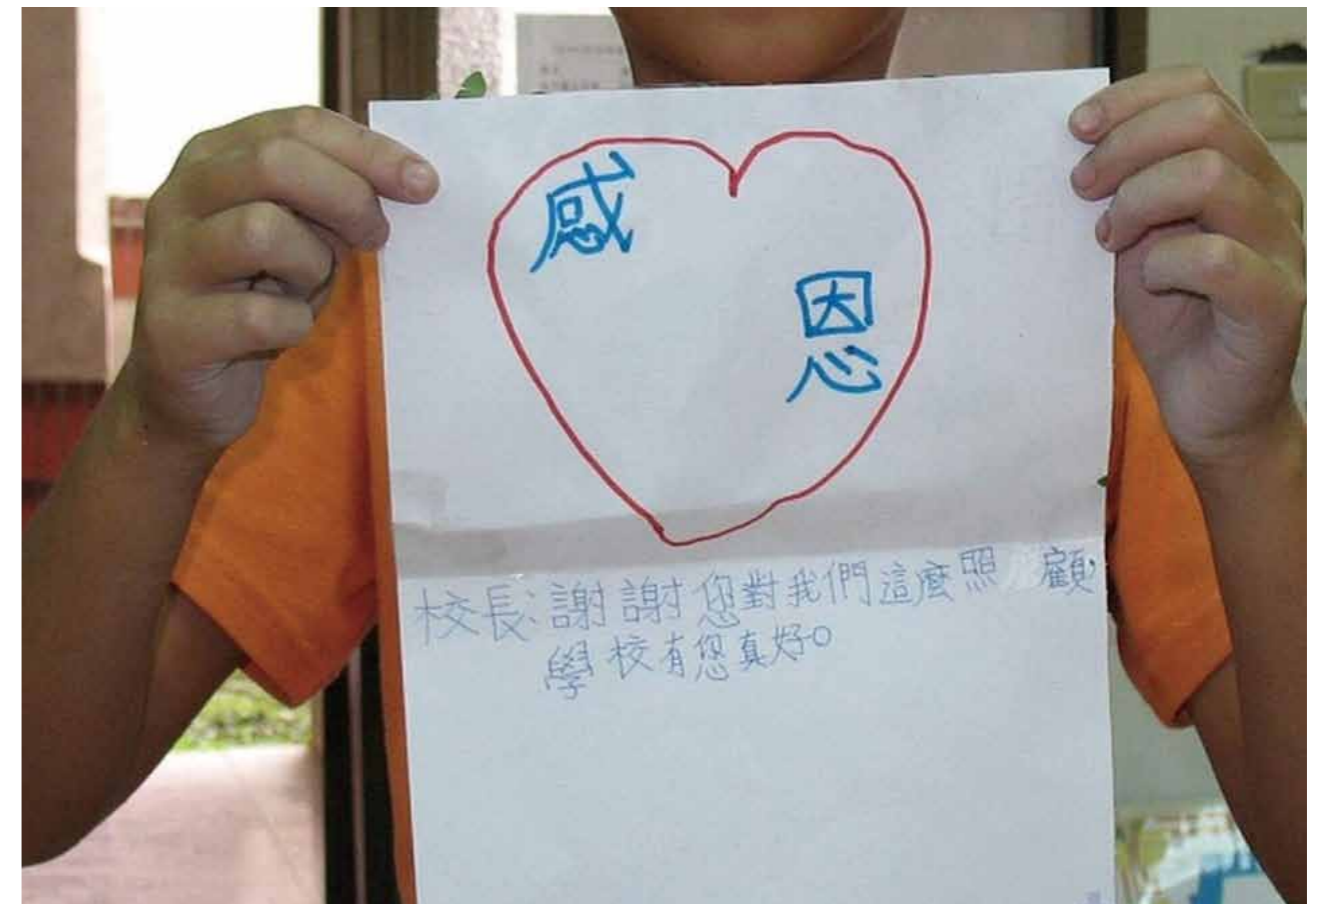 感
恩
校長:謝謝您對我們這麼照顧,
學校有您真好。